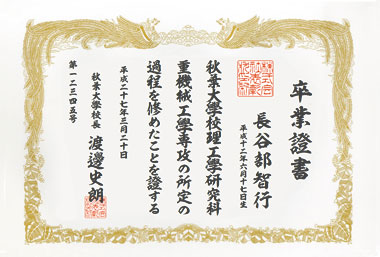 卒業證書
長谷部智行
平成十二年六月十七日生
秋葉大學校理工學研究科
重機械工學専攻の所定の
過程を修めたことを證する
平成二十七年三月二十日
秋葉大學校長 渡邊史朗
第一二三四五号